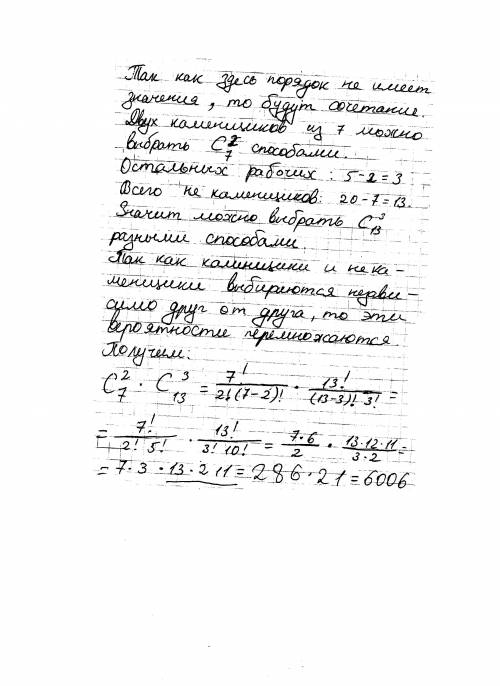 Так как здесь порядок не имеет
значения, то будут сочетание.
Двух каменщиков из 7 можно
выбрать C₇² способами.
Остальных рабочих: 5-2=3
Всего не каменщиков: 20-7=13.
Значит можно выбрать C₁₃³
разными способами.
Так как каминщики и нека-
менщики выбираются незави-
симо друг от друга, то эти
вероятности перемножаются.
Получим:
C₇² · C₁₃³ = 7!/2!(7-2)! · 13!/(13-3)! 3! =
= 7!/2! 5! · 13!/3! 10! = 7·6/2 · 13·12·11/3·2 =
= 7·3 · 13·2 11 = 286·21 = 6006